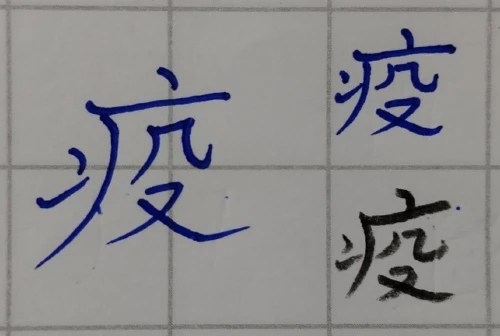 疫 疫
疫